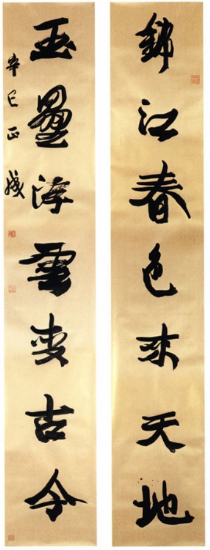 錦江春色来天地
玉壘浮雲变古今
辛巳正